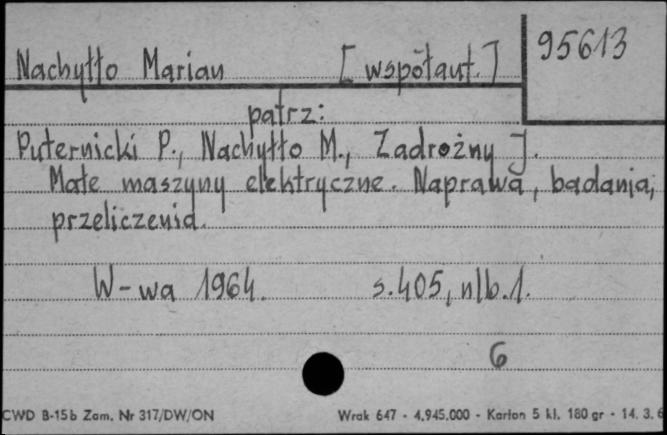 95613
Nachyłło Marian [współaut.]
patrz:
Puternicki P., Nachyłło M., Zadrożny J.
Małe maszyny elektryczne. Naprawa, badania,
przeliczenia.
W-wa 1964. s.405, nlb.1.
6
CWD B-15b Zam. Nr 317/DW/ON Wrak 647 - 4.945.000 - Karton 5 kl. 180 gr - 14. 3. 6